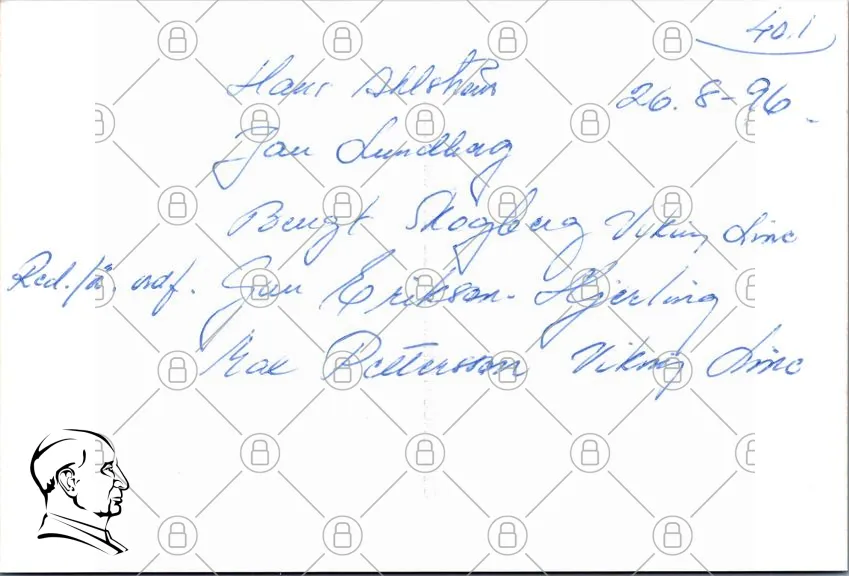 40.1
Hans Ahlström 26.8-96.
Jan Lundberg
Bengt Skogberg Viking Line
Red./ ordf. Jan Erikson-Hjerling
Pettersson Viking Line